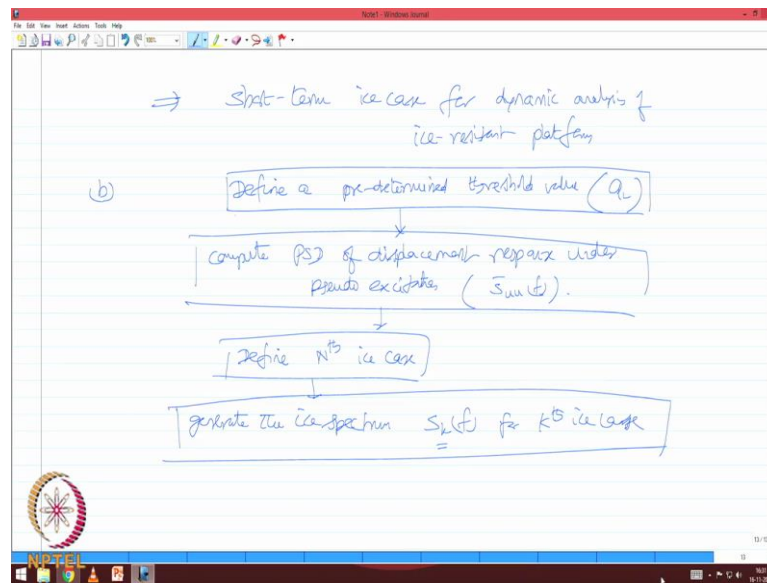 Note1 - Windows Journal
File Edit View Insert Actions Tools Help
⇒ Short-term ice case for dynamic analysis of
ice-resistant platform
(b)
Define a pre-determined threshold value (a_L)
compute PSD of displacement response under
pseudo excitation (S̄uu(f)).
Define Nth ice case
generate the ice spectrum S_k(f) for Kth ice case
NPTEL
13
16:31